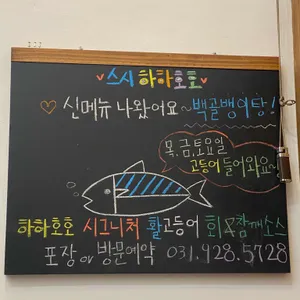 스시하하호호
신메뉴 나왔어요~백골뱅이탕!
목,금,토요일
고등어 들어와요~
하하호호 시그니처 활고등어 회 & 참깨소스
포장 or 방문예약 031.928.5728